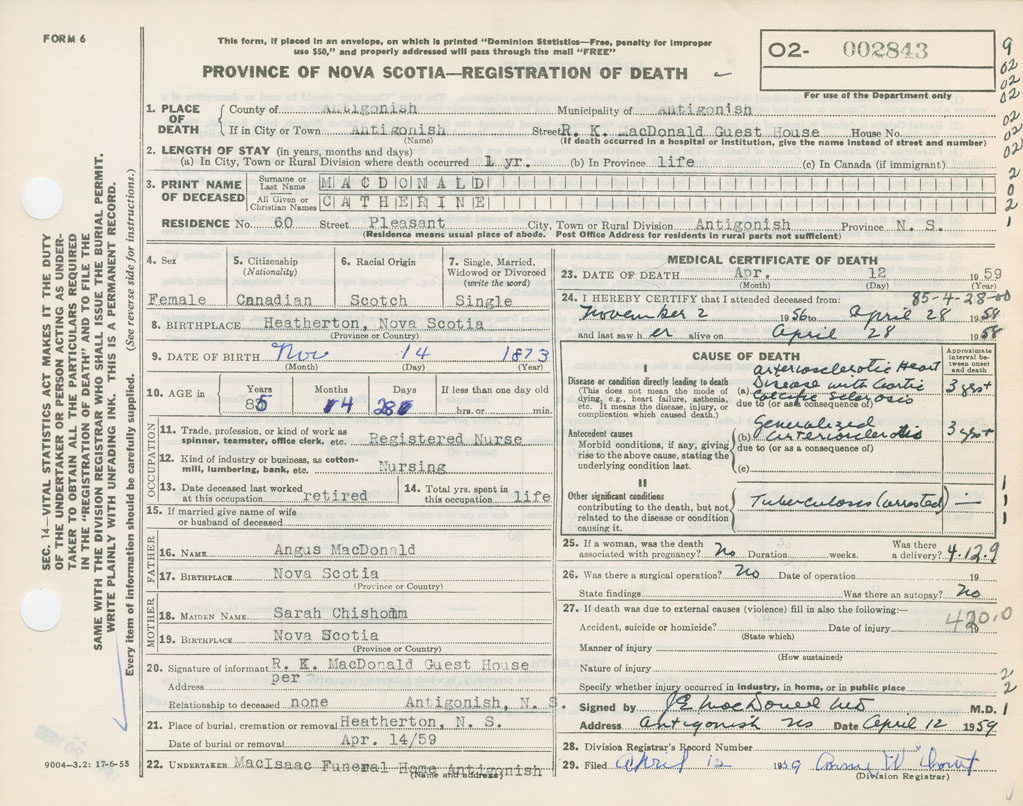 FORM 6
This form, if placed in an envelope, on which is printed "Dominion Statistics—Free, penalty for improper
use $50," and properly addressed will pass through the mail "FREE"
PROVINCE OF NOVA SCOTIA—REGISTRATION OF DEATH
O2- 002843
For use of the Department only
9
02
02
02
02
02
02
2
0
2
1
SEC. 14—VITAL STATISTICS ACT MAKES IT THE DUTY
OF THE UNDERTAKER OR PERSON ACTING AS UNDER-
TAKER TO OBTAIN ALL THE PARTICULARS REQUIRED
IN THE "REGISTRATION OF DEATH" AND FILE THE
SAME WITH THE DIVISION REGISTRAR WHO SHALL ISSUE THE BURIAL PERMIT.
WRITE PLAINLY WITH UNFADING INK. THIS IS A PERMANENT RECORD.
Every item of information should be carefully supplied. (See reverse side for instructions.)
1. PLACE OF DEATH
County of Antigonish Municipality of Antigonish
If in City or Town Antigonish Street R. K. MacDonald Guest House House No.
(Name) (If death occurred in a hospital or institution, give the name instead of street and number)
2. LENGTH OF STAY (in years, months and days)
(a) In City, Town or Rural Division where death occurred 1 yr. (b) In Province life (c) In Canada (if immigrant)
3. PRINT NAME OF DECEASED
Surname or Last Name MACDONALD
All Given or Christian Names CATHERINE
RESIDENCE No. 60 Street Pleasant City, Town or Rural Division Antigonish Province N. S.
(Residence means usual place of abode. Post Office Address for residents in rural parts not sufficient)
4. Sex
Female
5. Citizenship
(Nationality)
Canadian
6. Racial Origin
Scotch
7. Single, Married,
Widowed or Divorced
(write the word)
Single
8. BIRTHPLACE Heatherton, Nova Scotia
(Province or Country)
9. DATE OF BIRTH Nov 14 1873
(Month) (Day) (Year)
10. AGE in
Years 85
Months 4
Days 28
If less than one day old
hrs. or min.
OCCUPATION
11. Trade, profession, or kind of work as
spinner, teamster, office clerk, etc. Registered Nurse
12. Kind of industry or business, as cotton-
mill, lumbering, bank, etc. Nursing
13. Date deceased last worked
at this occupation retired
14. Total yrs. spent in
this occupation life
15. If married give name of wife
or husband of deceased
FATHER
16. NAME Angus MacDonald
17. BIRTHPLACE Nova Scotia
(Province or Country)
MOTHER
18. MAIDEN NAME Sarah Chisholm
19. BIRTHPLACE Nova Scotia
(Province or Country)
20. Signature of informant R. K. MacDonald Guest House
per
Address
Relationship to deceased none Antigonish, N S.
21. Place of burial, cremation or removal Heatherton, N. S.
Date of burial or removal Apr. 14/59
22. UNDERTAKER MacIsaac Funeral Home Antigonish
(Name and address)
9004—3.2: 17-6-55
MEDICAL CERTIFICATE OF DEATH
23. DATE OF DEATH Apr. 12 1959
(Month) (Day) (Year)
85-4-28-00
24. I HEREBY CERTIFY that I attended deceased from:
November 2 1956 to April 28 1958
and last saw her alive on April 28 1958
CAUSE OF DEATH
Approximate interval between onset and death
I
Disease or condition directly leading to death
(This does not mean the mode of
dying, e.g., heart failure, asthenia,
etc. It means the disease, injury, or
complication which caused death.)
(a) Arteriosclerotic Heart
Disease with Aortic
calcific sclerosis
due to (or as a consequence of)
3 yrs+
Antecedent causes
Morbid conditions, if any, giving
rise to the above cause, stating the
underlying condition last.
(b) Generalized
arteriosclerosis
due to (or as a consequence of)
3 yrs+
(c)
II
Other significant conditions
contributing to the death, but not
related to the disease or condition
causing it.
Tuberculosis (arrested) —
1
1
1
25. If a woman, was the death
associated with pregnancy? No Duration weeks. Was there a delivery?
4.12.9
26. Was there a surgical operation? No Date of operation 19
State findings Was there an autopsy? No
27. If death was due to external causes (violence) fill in also the following:—
Accident, suicide or homicide? Date of injury 19
420.0
(State which)
Manner of injury
(How sustained)
Nature of injury
Specify whether injury occurred in industry, in home, or in public place
2
2
Signed by J E MacDonell MD M.D. 1
Address Antigonish NS Date April 12 1959
28. Division Registrar's Record Number
29. Filed April 12 1959
(Division Registrar)